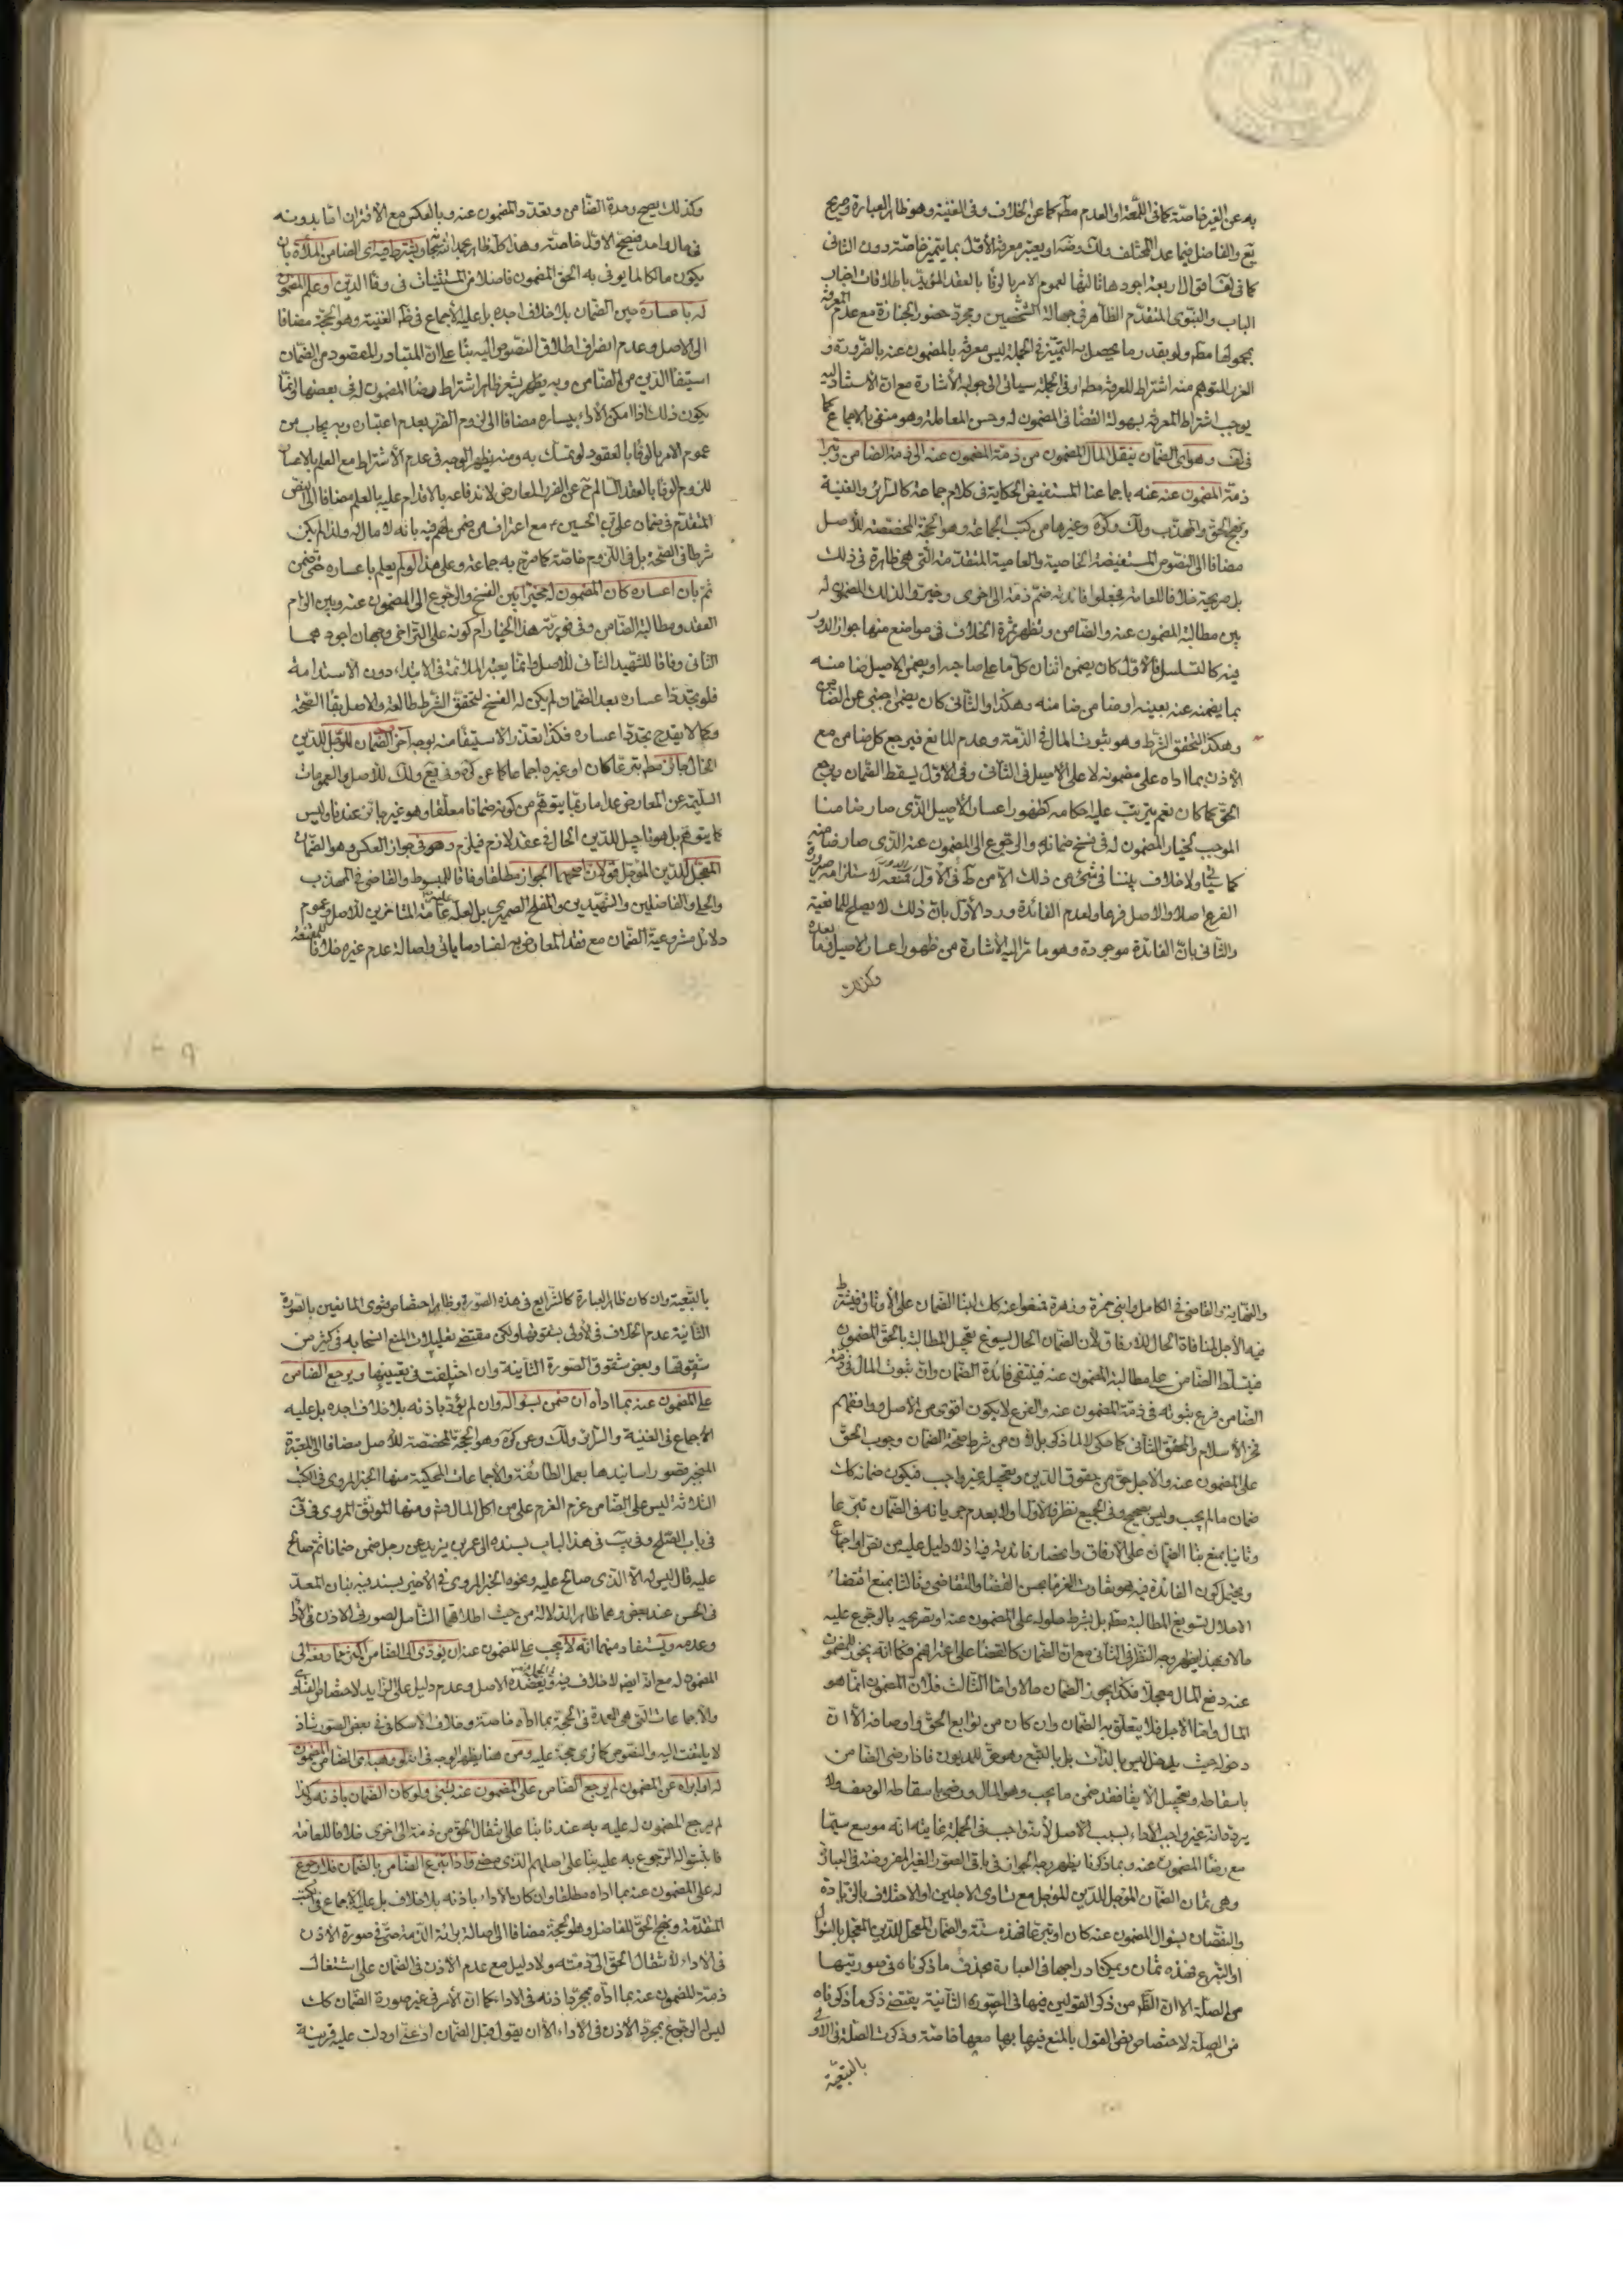 به عن الغير خاصّة كما في اللمعة او العدم مطم كما عن الخلاف وفي الغنية وهو ظاهر العبارة وصريح
يع والفاضل فيما عدا المختلف ولك وضه او يعتبر معرفة الأوّل بما يتميّز خاصّة دون الثاني
كما في لف اقوال اربعة اجودها ثالثها لعموم الامر بالوفا بالعقد المؤيّد باطلاقات اخبار
الباب والنبوي المتقدّم الظاهر في جهالة الشخصين ومجرّد حضور الجنازة مع عدم المعرفة
بحمولها مطم ولو بقدر ما يحصل به التميّز في الجملة ليس معرفة بالمضمون عنه بالضرورة و
الغرر المتوهم منه اشتراط المعرفة مطم او في الجملة سياتي الى جوابه الأشارة مع ان الاستناد اليه
يوجب اشتراط المعرفة بسهولة القضا في المضمون له وحسن المعاملة وهو منفي بالاجماع كما
في لف وهو اي الضمان ينقل المال المضمون من ذمّة المضمون عنه الى ذمة الضامن وتبرا
ذمّة المضمون عنه عنه باجماعنا المستفيض الحكاية في كلام جماعة كالسرائر والغنية
ونهج الحق والمهذّب ولك وكره وغيرها من كتب الجماعة وهو الحجّة المخصّصة للأصل
مضافا الى النصوص المستفيضة الخاصية والعامية المتقدّمة التي هي ظاهرة في ذلك
بل صريحة خلافا للعامة فجعلوا فائدته ضمّ ذمّة الى اخرى وخيّروا لذلك المضمون له
بين مطالبة المضمون عنه والضامن وتظهر ثمرة الخلاف في مواضع منها جواز الدور
فيه كالتسلسل فالأوّل كان يضمن اثنان كلّ ما على صاحبه او يضمن الاصيل ضامنه
بما يضمنه عنه بعينه او ضامن ضامنه وهكذا والثاني كان يضمن اجنبي عن الضامن
وهكذا لتحقق الشرط وهو ثبوت المال في الذمّة وعدم المانع فيرجع كل ضامن مع
الأذن بما اداه على مضمونه لا على الأصيل في الثاني وفي الاوّل يسقط الضمان ويرجع
الحقّ كما كان نعم يترتب عليه احكامه كظهور اعسار الأصيل الذي صار ضامنا
الموجب لخيار المضمون له في فسخ ضمانه والرجوع الى المضمون عنه الذي صار ضامنه
كما سياتي ولا خلاف بيننا في شيء من ذلك الا من ط في الأوّل فمنعه لاستلزامه صيرورة
الفرع اصلا والاصل فرعا ولعدم الفائدة وردّ الأوّل بانّ ذلك لا يصلح للمانعية
والثاني بانّ الفائدة موجودة وهو ما مرّ اليه الأشارة من ظهور اعسار الاصيل بعده
وكذلك
وكذلك يصح وحدة الضامن وتعدّد المضمون عنه وبالعكس مع الاقتران امّا بدونه
في مال واحد فيصحّ الاوّل خاصّة وهذا كلّه ظاهر بحمد الله سبحانه ويشترط فيه اي الضامن الملائة بان
يكون مالكا لما يوفى به الحق المضمون فاضلا من المستثنيات في وفاء الدين او علم المضمون
له باعساره حين الضمان بلا خلاف اجده بل عليه الأجماع في ظم الغنية وهو الحجّة مضافا
الى الاصل وعدم انصراف اطلاق النصوص اليه بنا على انّ المتبادر المقصود من الضمان
استيفا الدّين من الضامن وبه يظهر يشعر ظاهر اشتراط رضا المضمون له في بعضها وانّما
يكون ذلك اذا امكن الأداء بيساره مضافا الى لزوم الضرر بعدم اعتباره وبه يجاب عن
عموم الأمر بالوفا بالعقود لو تمسّك به ومنه يظهر الوجه في عدم الأشتراط مع العلم بالاعسار
للزوم الوفا بالعقد السالم ح عن الضرر المعارض لاندفاعه بالاقدام عليه بالعلم مضافا الى النص
المتقدّم في ضمان علي بن الحسين ع مع اعترافه بانه لا مال له ولذا لم يكن
شرطا في الصحّة بل في اللزوم خاصّة كما صرّح به جماعة وعلى هذا لو لم يعلم باعساره حتى ضمن
ثمّ بان اعساره كان المضمون له مخيرا بين الفسخ والرجوع الى المضمون عنه وبين الزام
العقد ومطالبة الضامن وفي فوريّة هذا الخيار ام كونه على التراخي وجهان اجودهما
الثاني وفاقا للشهيد الثاني للأصل وانّما يعتبر الملائة في الابتداء دون الاستدامة
فلو تجدّد اعساره بعد الضمان لم يكن له الفسخ لتحقق الشرط حالته والاصل بقاء الصحّة
وكما لا يقدح تجدّد اعساره فكذا تعذر الاستيفاء منه بوجه آخر والضمان المؤجّل للدين
الحال جائز مطم تبرعا كان او غيره اجماعا كما عن كره وفي يع ولك للأصل والعمومات
السليمة عن المعارض عدا ما ربّما يتوهّم من كونه ضمانا معلّقا وهو غير جائز عندنا وليس
كما يتوهّم بل هو تاجيل للدين الحال في عقد لازم فيلزم وهو في جواز العكس وهو الضمان
المعجّل للدين المؤجل قولان اصحهما الجواز مطلقا وفاقا للمبسوط والقاضي في المهذب
والحلي والفاضلين والشهيدين والمفلح الصيمري بل لعله عليه عامة المتاخرين للأصل وعموم
دلائل مشروعيّة الضمان مع فقد المعارض لفساد ما ياتي واصالة عدم غيره خلافا للمقنعة
والنهاية والقاضي في الكامل وابني حمزة وزهرة فمنعوا عنه لابتناء الضمان على الأرفاق فيشترط
فيه الأجل لمنافاة الحال للارفاق ولأن الضمان الحال يسوغ تعجيل المطالبة بالحق المضمون
فيتسلّط الضامن على مطالبة المضمون عنه فينتفي فائدة الضمان وانّ ثبوت المال في ذمّة
الضامن فرع ثبوته في ذمّة المضمون عنه والفرع لا يكون اقوى من الأصل ووافقهم
فخر الأسلام والمحقق الثاني كما حكي لا لما ذكر بل لأن من شرط صحّة الضمان وجوب الحقّ
على المضمون عنه والاجل حق من حقوق الدّين وتعجيله غير واجب فيكون ضمانه كان
ضمان ما لم يجب وليس بصحيح وفي الجميع نظر فالأوّل اولا بعدم جريانه في الضمان تبرّعا
وثانيا بمنع بنا الضمان على الأرفاق وانحصار فائدته فيه اذ لا دليل عليه من نصّ او اجماع
ويحتمل كون الفائدة فيه هو تفاوت الغرما بحسن القضا والتقاضي وثالثا بمنع اقتضاء
الاحلال تسويغ المطالبة مطم بل بشرط حلوله على المضمون عنه او تصريحه بالرجوع عليه
حالا وبهذا يظهر وجه النظر في الثاني مع انّ الضمان كالقضا على اعترافهم فكما انه يجوز للمضمون
عنه دفع المال معجلا فكذا يجوز الضمان حالا وامّا الثالث فلأن المضمون انّما هو
المال وامّا الأجل فلا يتعلّق به الضمان وان كان من توابع الحقّ واوصافه الأ انّ
دخوله حيث يدخل ليس بالذات بل بالتبع وهو حقّ للمديون فاذا رضي الضامن
باسقاطه وتعجيل الأيفا فقد ضمن ما يجب وهو المال ورضي باسقاط الوصف ولا
يرد انه غير واجب الأداء بسبب الأصل لأنه واجب في الجملة غايته انه موسع سيّما
مع رضا المضمون عنه وبما ذكرنا يظهر وجه الجواز في باقي الصور الغير المفروضة في العبارة
وهي ثمان الضمان المؤجل للدين المؤجل مع تساوي الاجلين او الاختلاف بالزيادة
والنقصان بسؤال المضمون عنه كان او تبرعا فهذه ستّة والضمان المعجل للدين المعجل بالسؤال
او التبرع فهذه ثمان ويمكن ادراجها في العبارة بحذف ما ذكرناه في صورتيها
من الصلة الا ان الظم من ذكر القولين فيها في الصورة الثانية يقتضي ذكر ما ذكرناه
من الصلة لاختصاص نفي القول بالمنع فيها بها معها خاصّة وذكرت الصّلة في الاولى
بالتبعيّة
بالتبعية وان كان ظاهر العبارة كالشرايع في هذه الصورة وظاهر اختصاص فتوى المانعين بالصورة
الثانية عدم الخلاف في الأولى بشقوقها ولكن مقتضى تعليلات المنع انسحابه في كثير من
شقوقها وبعض شقوق الصورة الثانية وان اختلفت في تعيينها ويرجع الضامن
على المضمون عنه بما ادّاه ان ضمن بسؤاله وان لم يؤدّ باذنه بلا خلاف اجده بل عليه
الأجماع في الغنية والسرائر ولك وعن كره وهو الحجّة المخصّصة للأصل مضافا الى المعتبرة
المنجبر قصور اسانيدها بعمل الطائفة والأجماعات المحكية منها الخبر المروي في الكتب
الثلاثة ليس على الضامن غرم الغرم على من اكل المال ومنها الموثق المروي في في
في باب الصّلح وفي يب في هذا الباب بسنده الى عمر بن يزيد عن رجل ضمن ضمانا ثم صالح
عليه قال ليس له الّا الذي صالح عليه ونحوه الخبر المروي في الأخير بسند فيه بنان المعدّ
في الحسن عند بعض وهما ظاهرا الدلالة من حيث اطلاقهما الشامل لصورتي الأذن في الاداء
وعدمه ويستفاد منهما انه لا يجب على المضمون عنه ان يؤدّى الى الضامن اكثر ممّا دفعه الى
المضمون له مع انه ايضا لا خلاف فيه ويعضده الاصل وعدم دليل على الزايد لاختصاص الفتاوى
والأجماعات التي هي العمدة في الحجّة بما ادّاه خاصّة وخلاف الأسكافي في بعض الصور شاذ
لا يلتفت اليه والنصوص كما ترى حجّة عليه ومن هنا يظهر الوجه في انه لو وهب اي الضامن المضمون
له او ابراه عن المضمون لم يرجع الضامن على المضمون عنه بشيء ولو كان الضمان باذنه وكذا
لم يرجع المضمون له عليه به عندنا بناء على انتقال الحقّ من ذمّة الى اخرى خلافا للعامة
فاثبتوا له الرجوع به عليه بناء على اصلهم الذي مضى واذا تبرّع الضامن بالضمان فلا رجوع
له على المضمون عنه بما ادّاه مطلقا وان كان الأداء باذنه بلا خلاف بل عليه الأجماع في الكتب
المتقدّمة ونهج الحق للفاضل وهو الحجّة مضافا الى اصالة برائة الذمّة حتّى في صورة الأذن
في الأداء لأنتقال الحق الى ذمّته ولا دليل مع عدم الأذن في الضمان على اشتغال
ذمّة المضمون عنه بما ادّاه بمجرّد اذنه في الاداء كما انّ الأمر في غير صورة الضمان كان
ليس له الرجوع بمجرّد الأذن في الأداء الأ ان يقول قبل الضمان ادّ عنّي او دلّت عليه قرينة